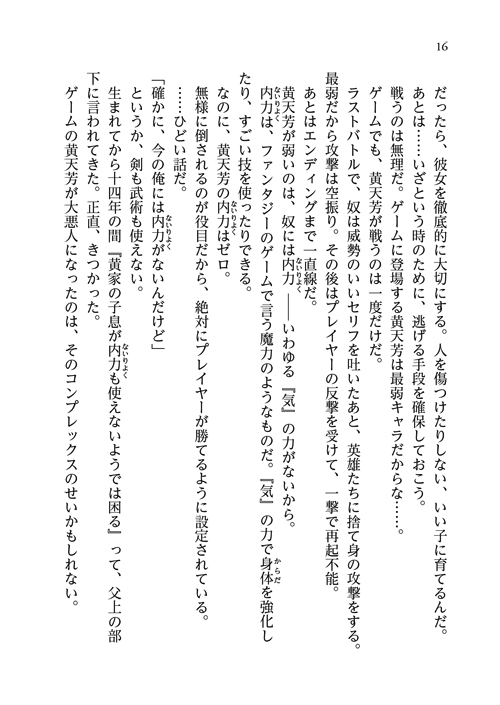 16
だったら、彼女を徹底的に大切にする。人を傷つけたりしない、いい子に育てるんだ。
あとは……いざという時のために、逃げる手段を確保しておこう。
戦うのは無理だ。ゲームに登場する黄天芳は最弱キャラだからな……。
ゲームでも、黄天芳が戦うのは一度だけだ。
ラストバトルで、奴は威勢のいいセリフを吐いたあと、英雄たちに捨て身の攻撃をする。
最弱だから攻撃は空振り。その後はプレイヤーの反撃を受けて、一撃で再起不能。
あとはエンディングまで一直線だ。
黄天芳が弱いのは、奴には内力――いわゆる『気』の力がないから。
内力は、ファンタジーのゲームで言う魔力のようなものだ。『気』の力で身体を強化し
たり、すごい技を使ったりできる。
なのに、黄天芳の内力はゼロ。
無様に倒されるのが役目だから、絶対にプレイヤーが勝てるように設定されている。
……ひどい話だ。
「確かに、今の俺には内力がないんだけど」
というか、剣も武術も使えない。
生まれてから十四年の間『黄家の子息が内力も使えないようでは困る』って、父上の部
下に言われてきた。正直、きつかった。
ゲームの黄天芳が大悪人になったのは、そのコンプレックスのせいかもしれない。